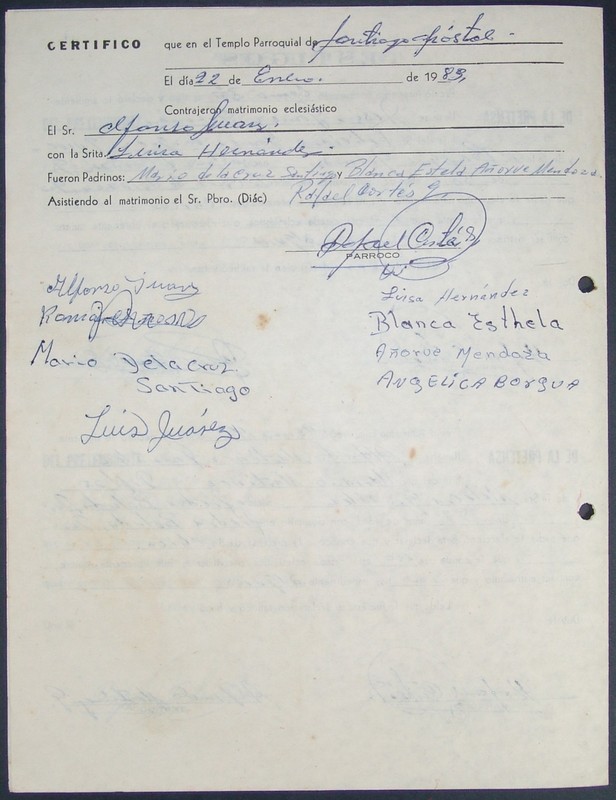 CERTIFICO que en el Templo Parroquial de Santiago Apóstol -
El día 22 de Enero. de 1983,
Contrajeron matrimonio eclesiástico
El Sr. Alfonso Juarez.
con la Srita. Luisa Hernández
Fueron Padrinos: Mario de la Cruz Santiago y Blanca Estela Añorve Mendoza.
Asistiendo al matrimonio el Sr. Pbro. (Diác) Rafael Cortés
Rafael Cortés
PARROCO
Alfonso Juarez
Luisa Hernández
Blanca Esthela
Mario Dela Cruz
Añorve Mendoza
Santiago
ANGELICA BORGUA
Luis Juárez